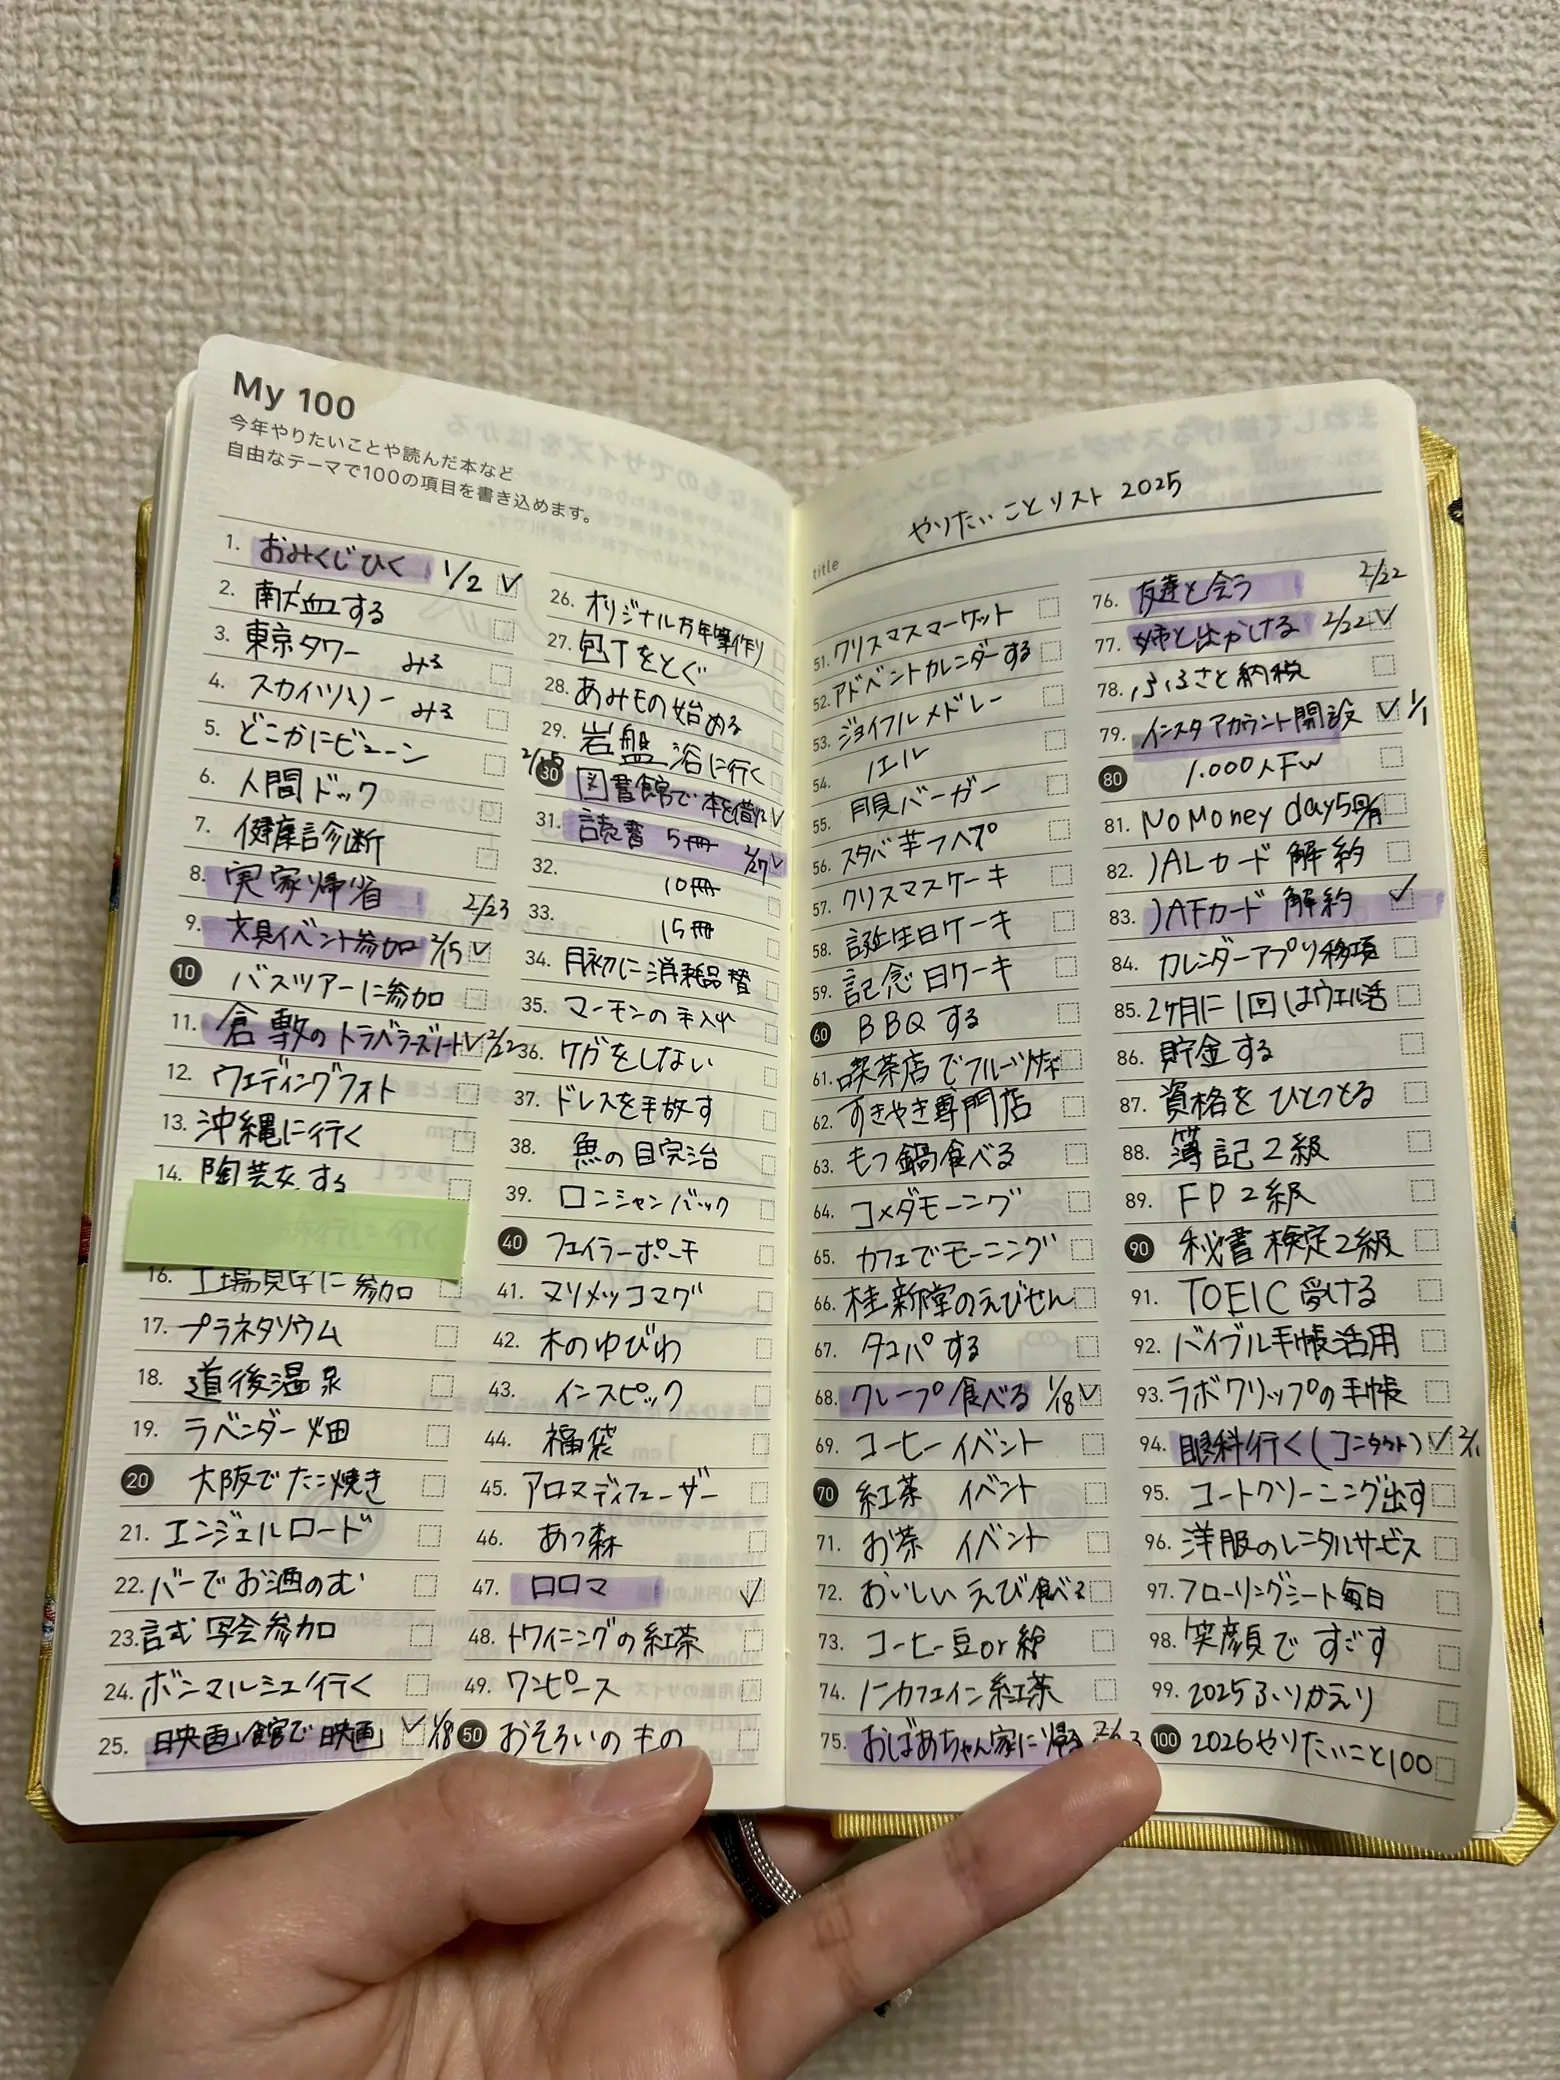 My 100
今年やりたいことや読んだ本など
自由なテーマで100の項目を書き込めます。
1. おみくじひく 1/2
2. 献血する
3. 東京タワー みる
4. スカイツリー みる
5. どこかにビューン
6. 人間ドック
7. 健康診断
8. 実家帰省 2/23
9. 文具イベント参加 2/15
10 バスツアーに参加
11. 倉敷のトラベラーズノート 2/22
12. ウェディングフォト
13. 沖縄に行く
14. 陶芸をする
16. 工場見学に参加
17. プラネタリウム
18. 道後温泉
19. ラベンダー畑
20 大阪でたこ焼き
21. エンジェルロード
22. バーでお酒のむ
23. 試写会参加
24. ボンマルシェ行く
25. 映画館で映画 1/18
26. オリジナル万年筆作り
27. 包丁をとぐ
28. あみもの始める
29. 岩盤浴に行く
30 図書館で本を借りる
31. 読書 5冊 2/27
32. 10冊
33. 15冊
34. 月初に消耗品替
35. マーモンの手入れ
36. ケガをしない
37. ドレスを手放す
38. 魚の目完治
39. ロンシャンバック
40 フェイラーポーチ
41. マリメッコマグ
42. 木のゆびわ
43. インスピック
44. 福袋
45. アロマディフューザー
46. あつ森
47. ロロマ
48. トワイニングの紅茶
49. ワンピース
50 おそろいのもの
title やりたいことリスト 2025
51. クリスマスマーケット
52. アドベントカレンダーする
53. ジョイフルメドレー
54. ノエル
55. 月見バーガー
56. スタバ芋フラペ
57. クリスマスケーキ
58. 誕生日ケーキ
59. 記念日ケーキ
60 BBQする
61. 喫茶店でフルーツサンド
62. すきやき専門店
63. もつ鍋食べる
64. コメダモーニング
65. カフェでモーニング
66. 桂新堂のえびせん
67. タコパする
68. クレープ食べる 1/18
69. コーヒーイベント
70 紅茶 イベント
71. お茶 イベント
72. おいしいえび食べる
73. コーヒー豆or粉
74. ノンカフェイン紅茶
75. おばあちゃん家に帰る
76. 友達と会う 2/22
77. 姉と出かける 2/22
78. ふるさと納税
79. インスタアカウント開設 1/1
80 1.000人FW
81. No Money day5回/月
82. JALカード 解約
83. JAFカード 解約
84. カレンダーアプリ移項
85. 2ヶ月に1回はウエル活
86. 貯金する
87. 資格をひとつとる
88. 簿記2級
89. FP2級
90 秘書検定2級
91. TOEIC受ける
92. バイブル手帳活用
93. ラボクリップの手帳
94. 眼科行く(コンタクト) 2/1
95. コートクリーニング出す
96. 洋服のレンタルサービス
97. フローリングシート毎日
98. 笑顔ですごす
99. 2025ふりかえり
100 2026やりたいこと100